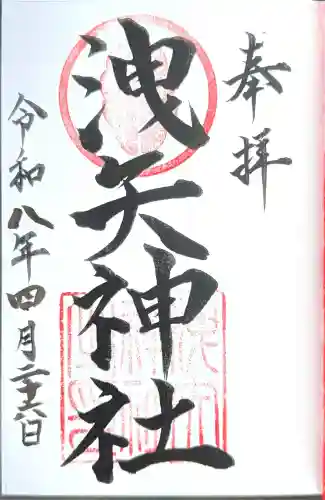 奉拝
洩矢神社
令和八年四月二十六日